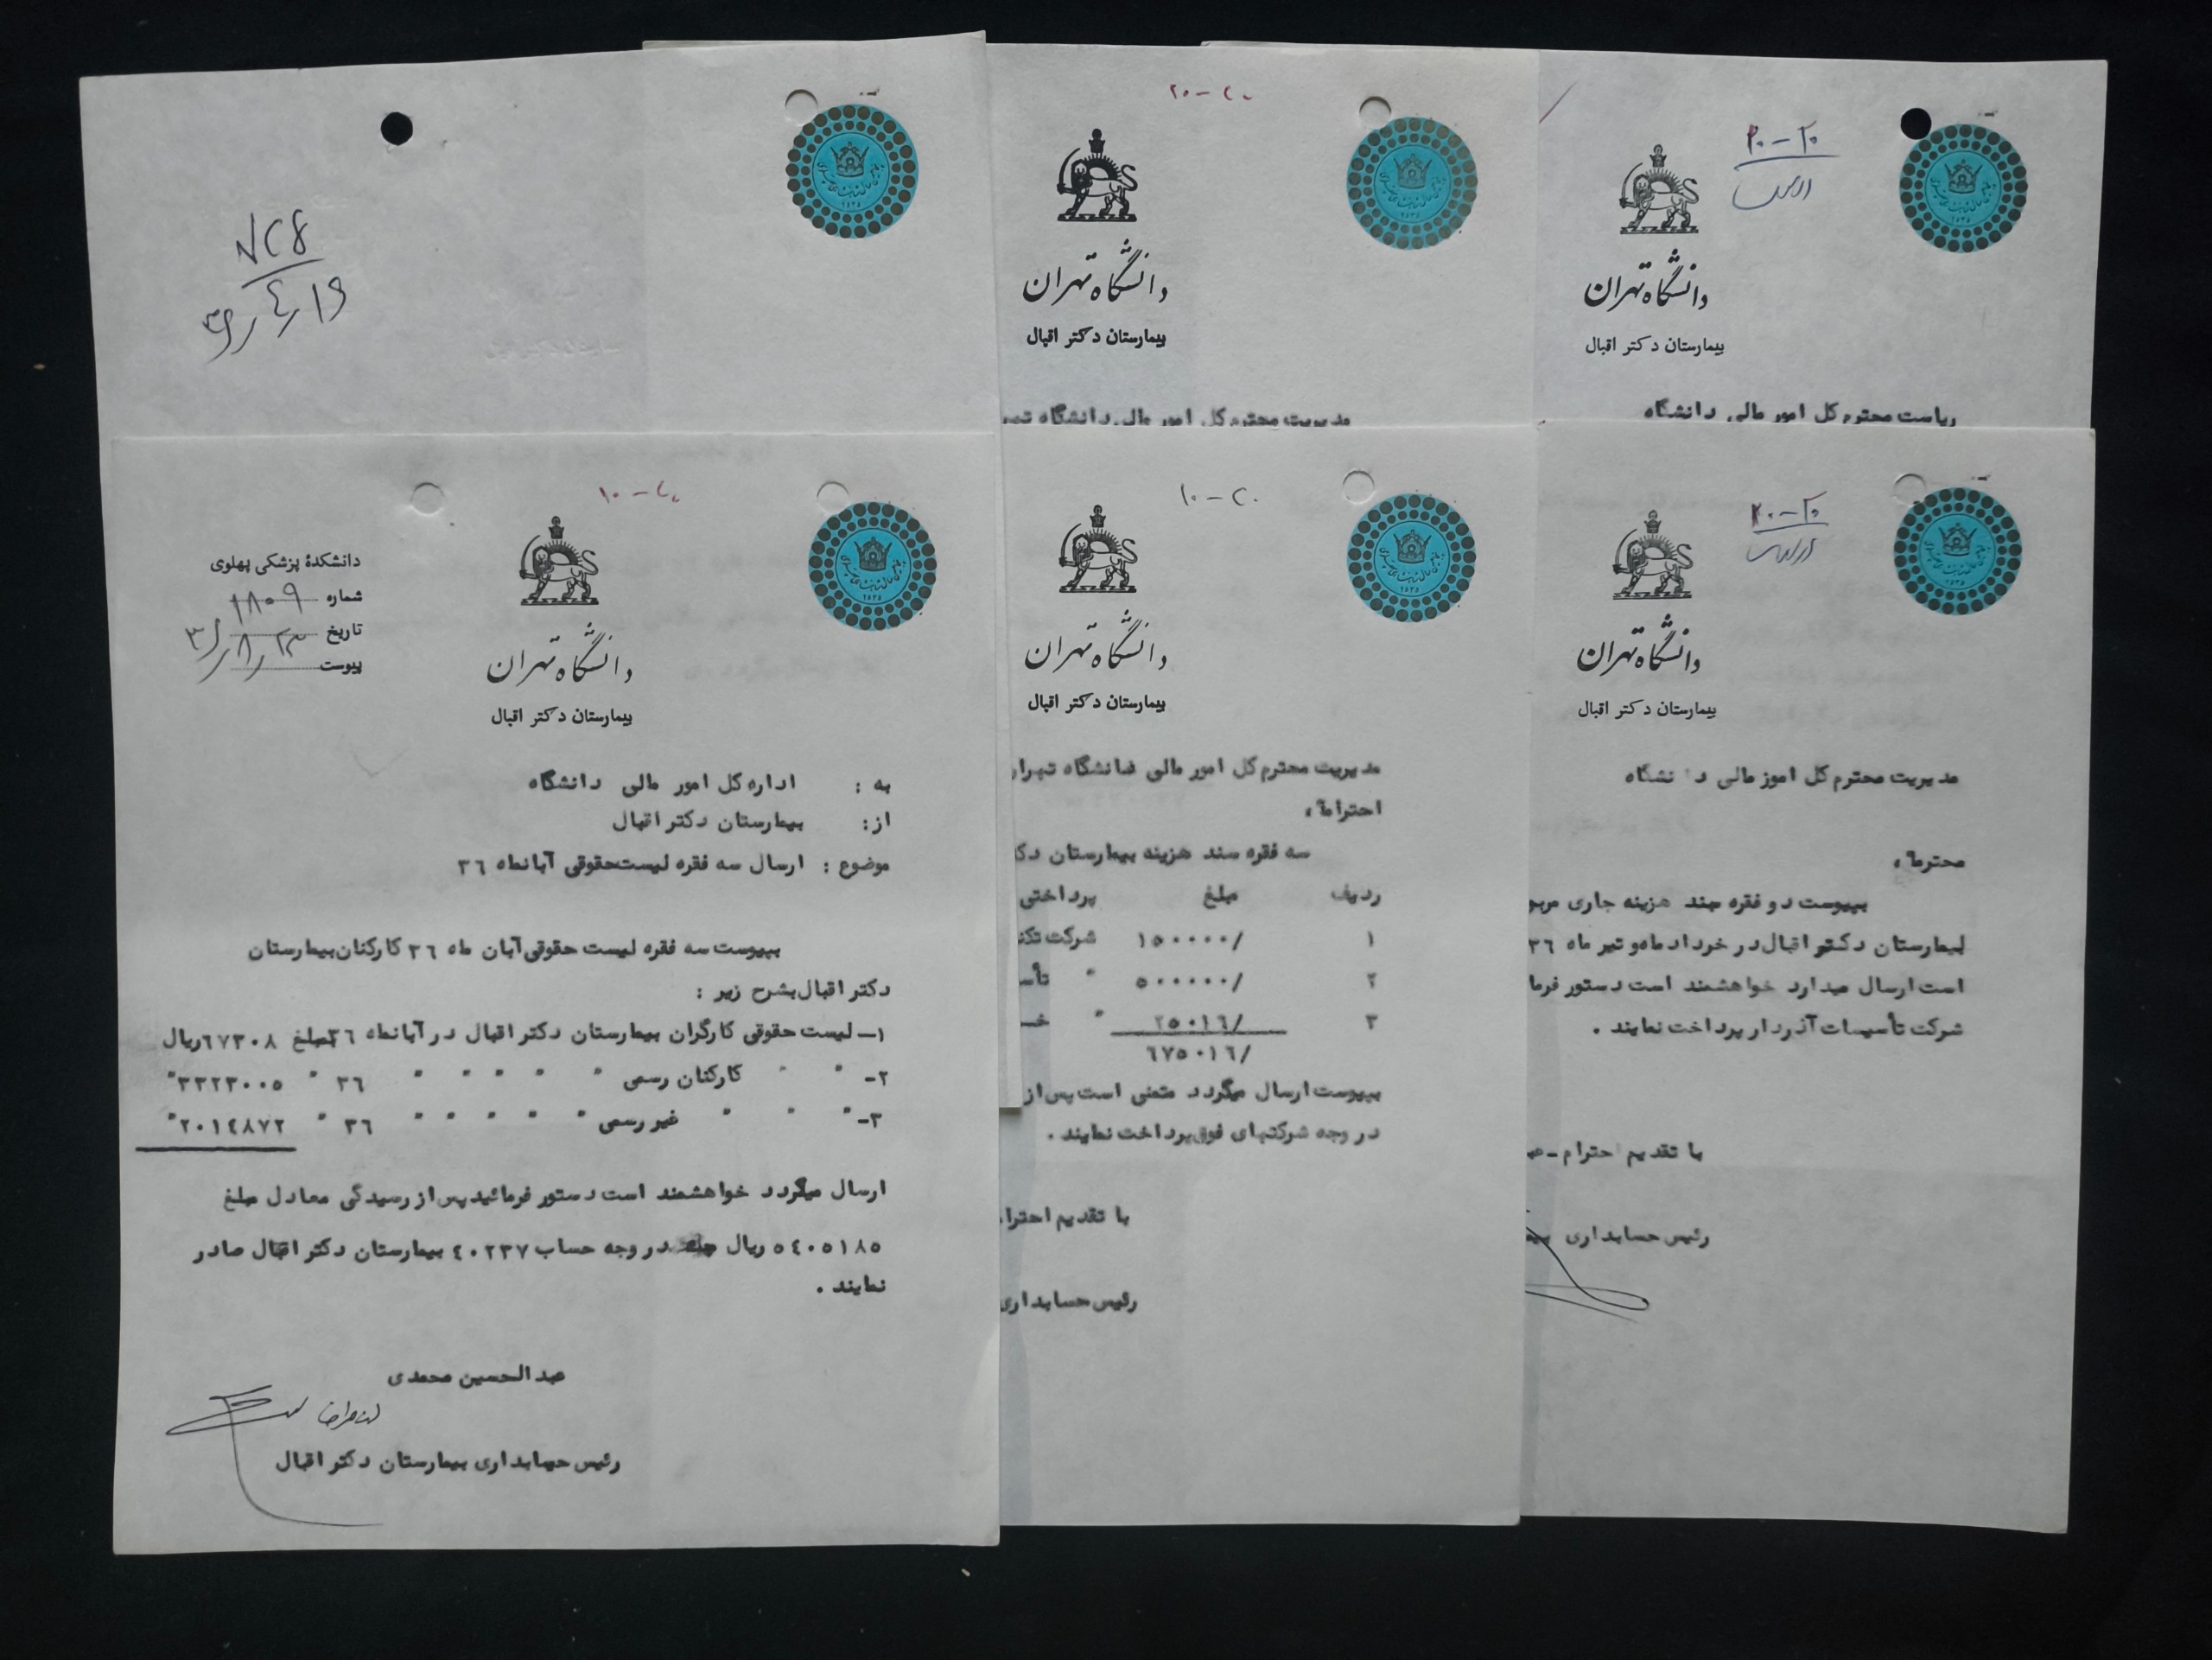 ۷۲۶
۳۶/۴/۱۹
۲۰-۲۰
دانشگاه تهران
بیمارستان دکتر اقبال
مدیریت محترم کل امور مالی دانشگاه
۲۰-۲۰
دانشگاه تهران
بیمارستان دکتر اقبال
ریاست محترم کل امور مالی دانشگاه
۱۰-۲۰
دانشکدهٔ پزشکی پهلوی
شماره ۱۸۰۹
تاریخ ۳۶/۸/۲۳
پیوست
۲۵۳۵
دانشگاه تهران
بیمارستان دکتر اقبال
به : اداره کل امور مالی دانشگاه
از : بیمارستان دکتر اقبال
موضوع : ارسال سه فقره لیست حقوقی آبانماه ۳٦
بپیوست سه فقره لیست حقوقی آبان ماه ۳٦ کارکنان بیمارستان
دکتر اقبال بشرح زیر :
۱- لیست حقوقی کارگران بیمارستان دکتر اقبال در آبانماه ۳٦ مبلغ ٦۷۳۰۸ ریال
۲- " " کارکنان رسمی " " " " " ۳٦ " ۳۳۲۳۰۰۵ "
۳- " " " غیر رسمی " " " " " ۳٦ " ۲۰۱٤۸۷۲ "
ارسال میگردد خواهشمند است دستور فرمائید پس از رسیدگی معادل مبلغ
۵٤۰۵۱۸۵ ریال در وجه حساب ٤۰۲۳۷ بیمارستان دکتر اقبال صادر
نمایند .
عبدالحسین محمدی
رئیس حسابداری بیمارستان دکتر اقبال
۱۰-۲۰
۲۵۳۵
دانشگاه تهران
بیمارستان دکتر اقبال
مدیریت محترم کل امور مالی دانشگاه تهران
احتراماً ،
سه فقره سند هزینه بیمارستان
ردیف مبلغ پرداختی
۱ ۱۵۰۰۰۰/ شرکت
۲ ۵۰۰۰۰۰/ "
۳ ۲۵۰۱٦/ "
٦۷۵۰۱٦/
بپیوست ارسال میگردد متمنی است پس از
در وجه شرکتهای فوق پرداخت نمایند .
با تقدیم
رئیس حسابداری
۲۰-۲۰
۲۵۳۵
دانشگاه تهران
بیمارستان دکتر اقبال
مدیریت محترم کل اموز مالی دانشگاه
محترماً ،
بپیوست دو فقره سند هزینه جاری
بیمارستان دکتر اقبال در خرداد ماه و تیر ماه ۳٦
است ارسال میدارد خواهشمند است دستور
شرکت تأسیسات آذردار پرداخت نمایند .
با تقدیم احترام -
رئیس حسابداری